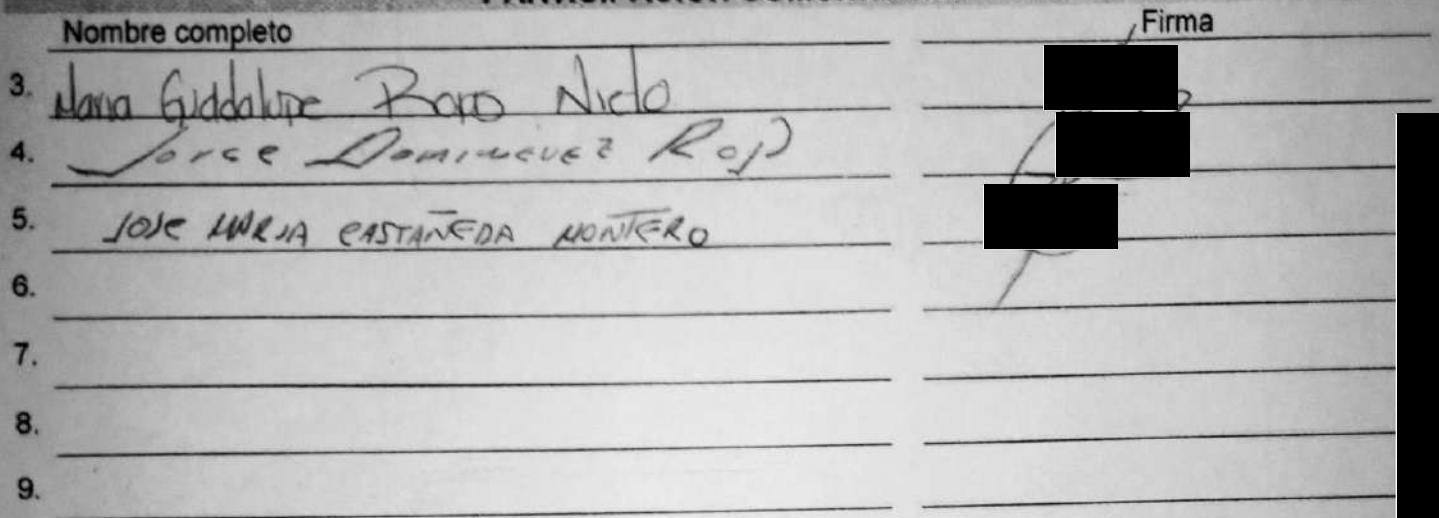 Nombre completo Firma
3. Maria Guddalupe Baro Nieto
4. Jorge Dominguez Rojo
5. JOSE MARIA CASTAÑEDA MONTERO
6.
7.
8.
9.